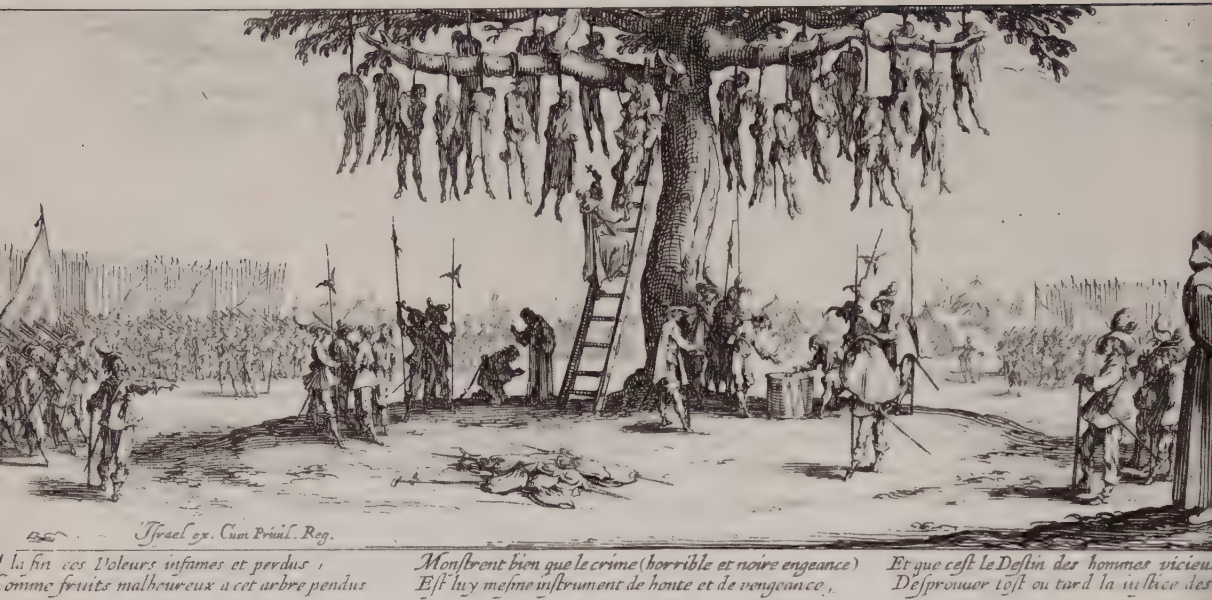 Israel ex. Cum Priuil. Reg.
la fin ces Voleurs infames et perdus ,
omme fruits malheureux a cet arbre pendus
Monstrent bien que le crime (horrible et noire engeance)
Est luy mesme instrument de honte et de vengeance ,
Et que cest le Destin des hommes vicieu
Desprouuer tost ou tard la iustice des